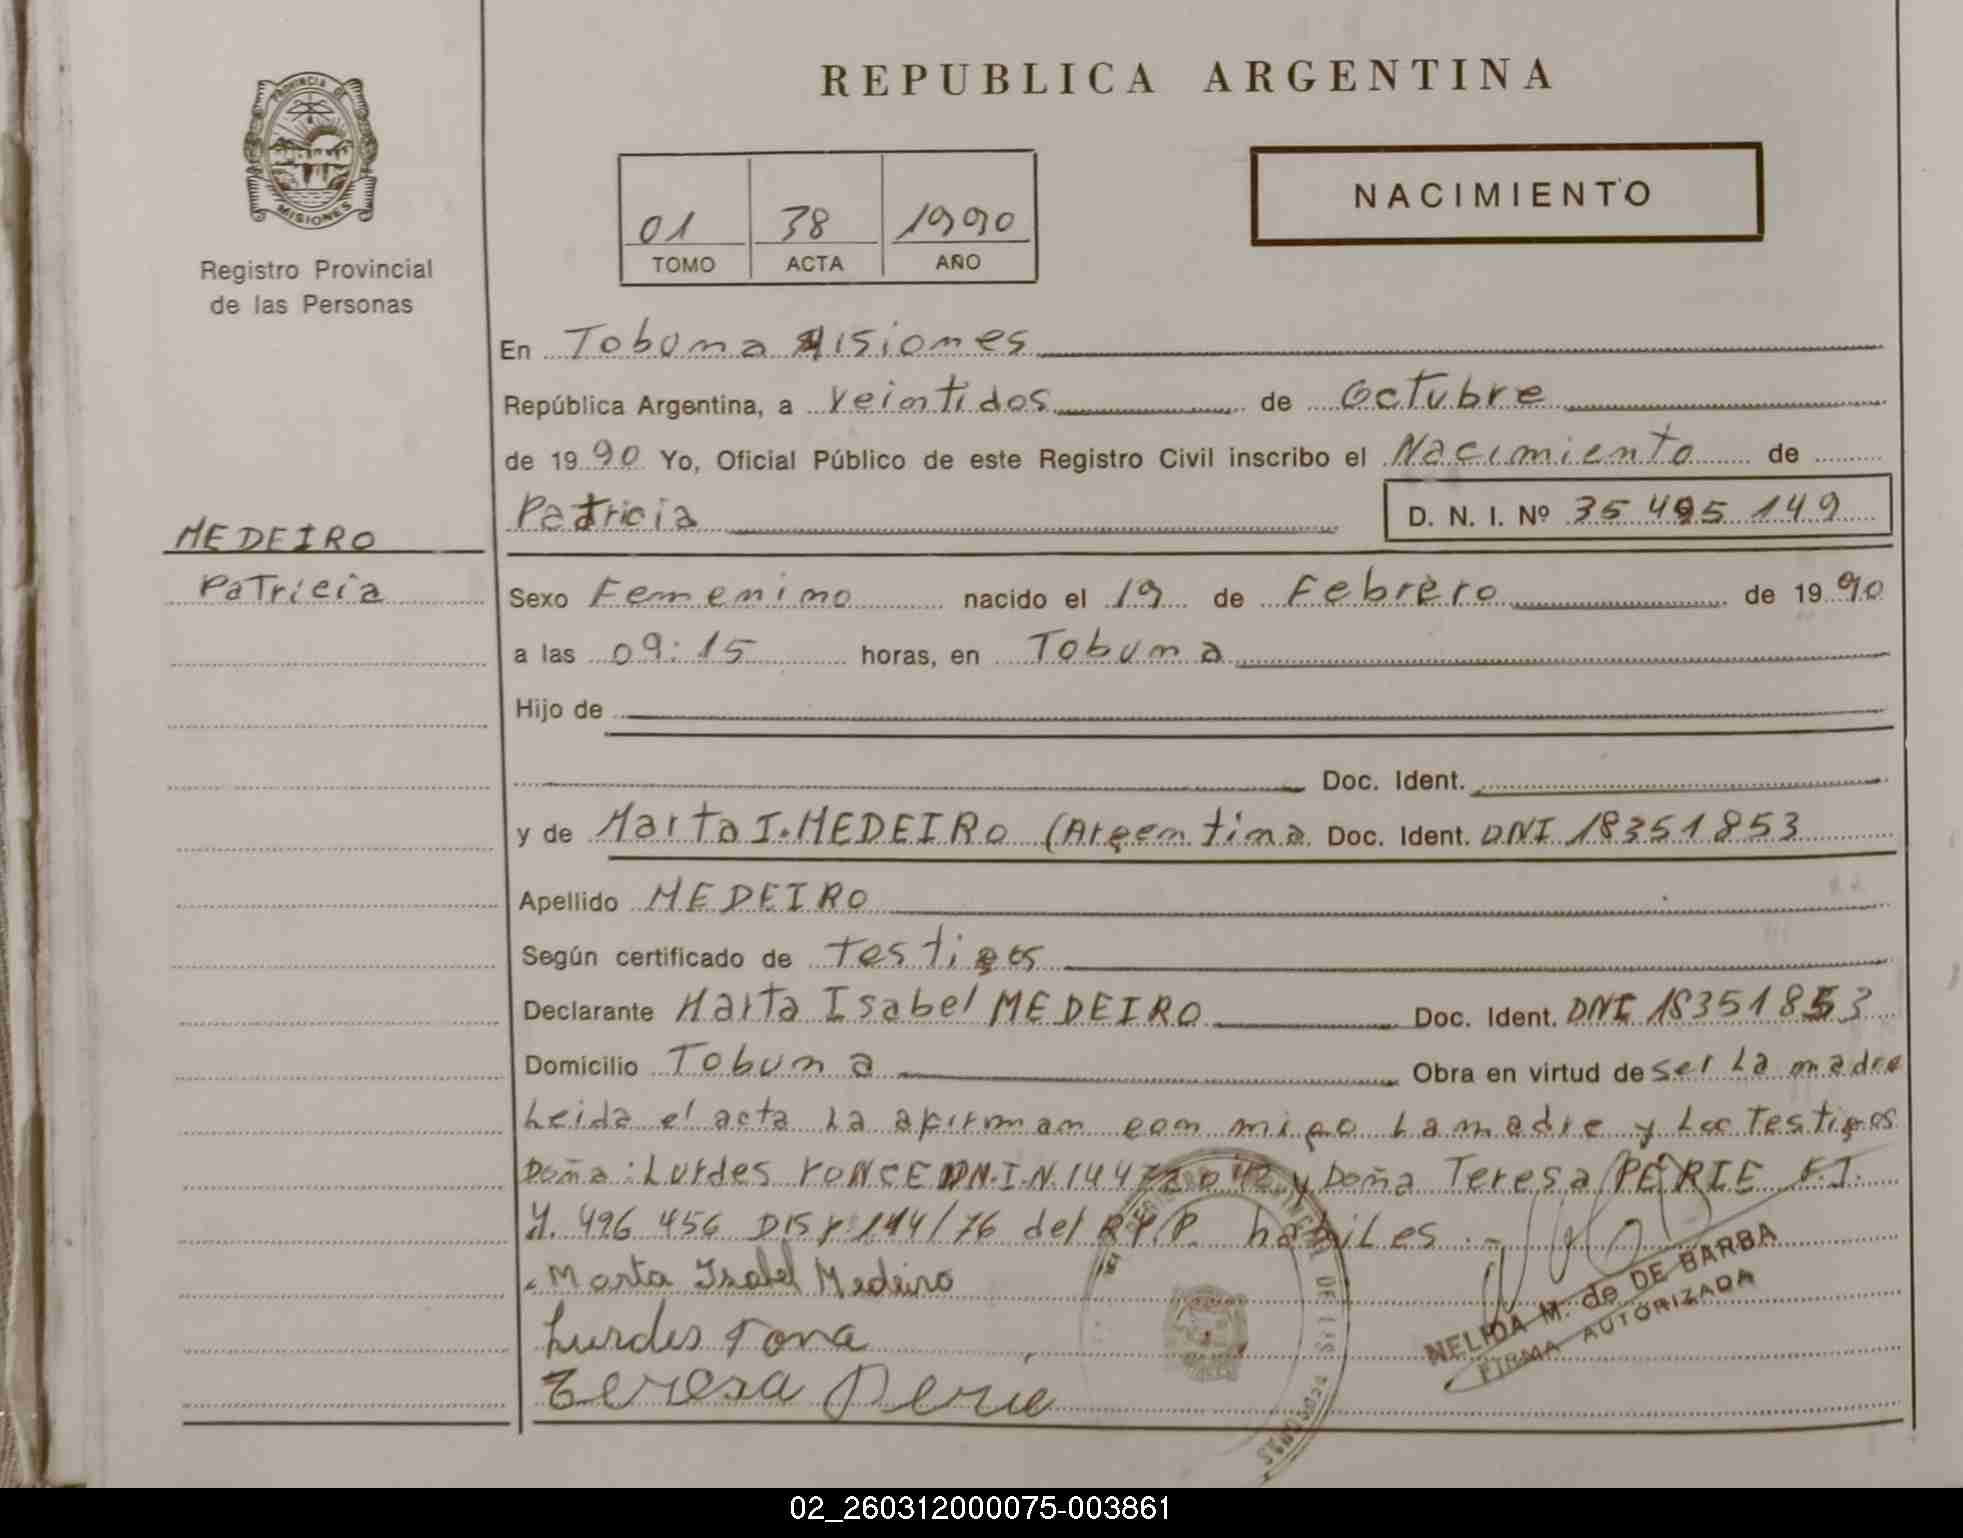 REPUBLICA ARGENTINA
PROVINCIA DE
MISIONES
Registro Provincial
de las Personas
01 38 1990
TOMO ACTA AÑO
NACIMIENTO
En Tobuna Misiones
República Argentina, a veintidos de Octubre
de 1990 Yo, Oficial Público de este Registro Civil inscribo el Nacimiento de
Patricia
D. N. I. Nº 35 495 149
MEDEIRO
Patricia
Sexo Femenino nacido el 19 de Febrero de 1990
a las 09:15 horas, en Tobuna
Hijo de
Doc. Ident.
y de Marta I. MEDEIRO (Argentina Doc. Ident. DNI 18351853
Apellido MEDEIRO
Según certificado de testigos
Declarante Marta Isabel MEDEIRO Doc. Ident. DNI 18351853
Domicilio Tobuna Obra en virtud de ser La madre
Leida el acta La afirman conmigo La madre y Los Testigos
Doña: Lurdes D.N.I.N. y Doña Teresa PERIE
496 456 del R.P.P. habiLes.-
Marta Isabel Medeiro
Lurdes
Teresa Perie
NELIDA M. de DE BARBA
FIRMA AUTORIZADA
02_260312000075-003861